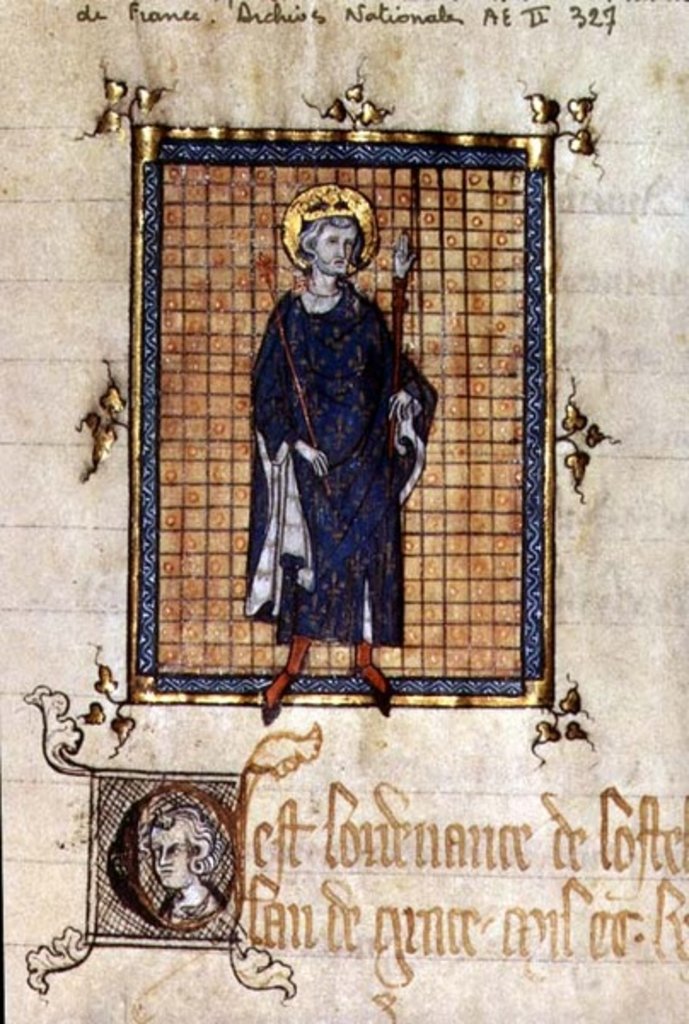 de France. Archives Nationales AE II 327
Cest lordenance de lostel
lan de grace